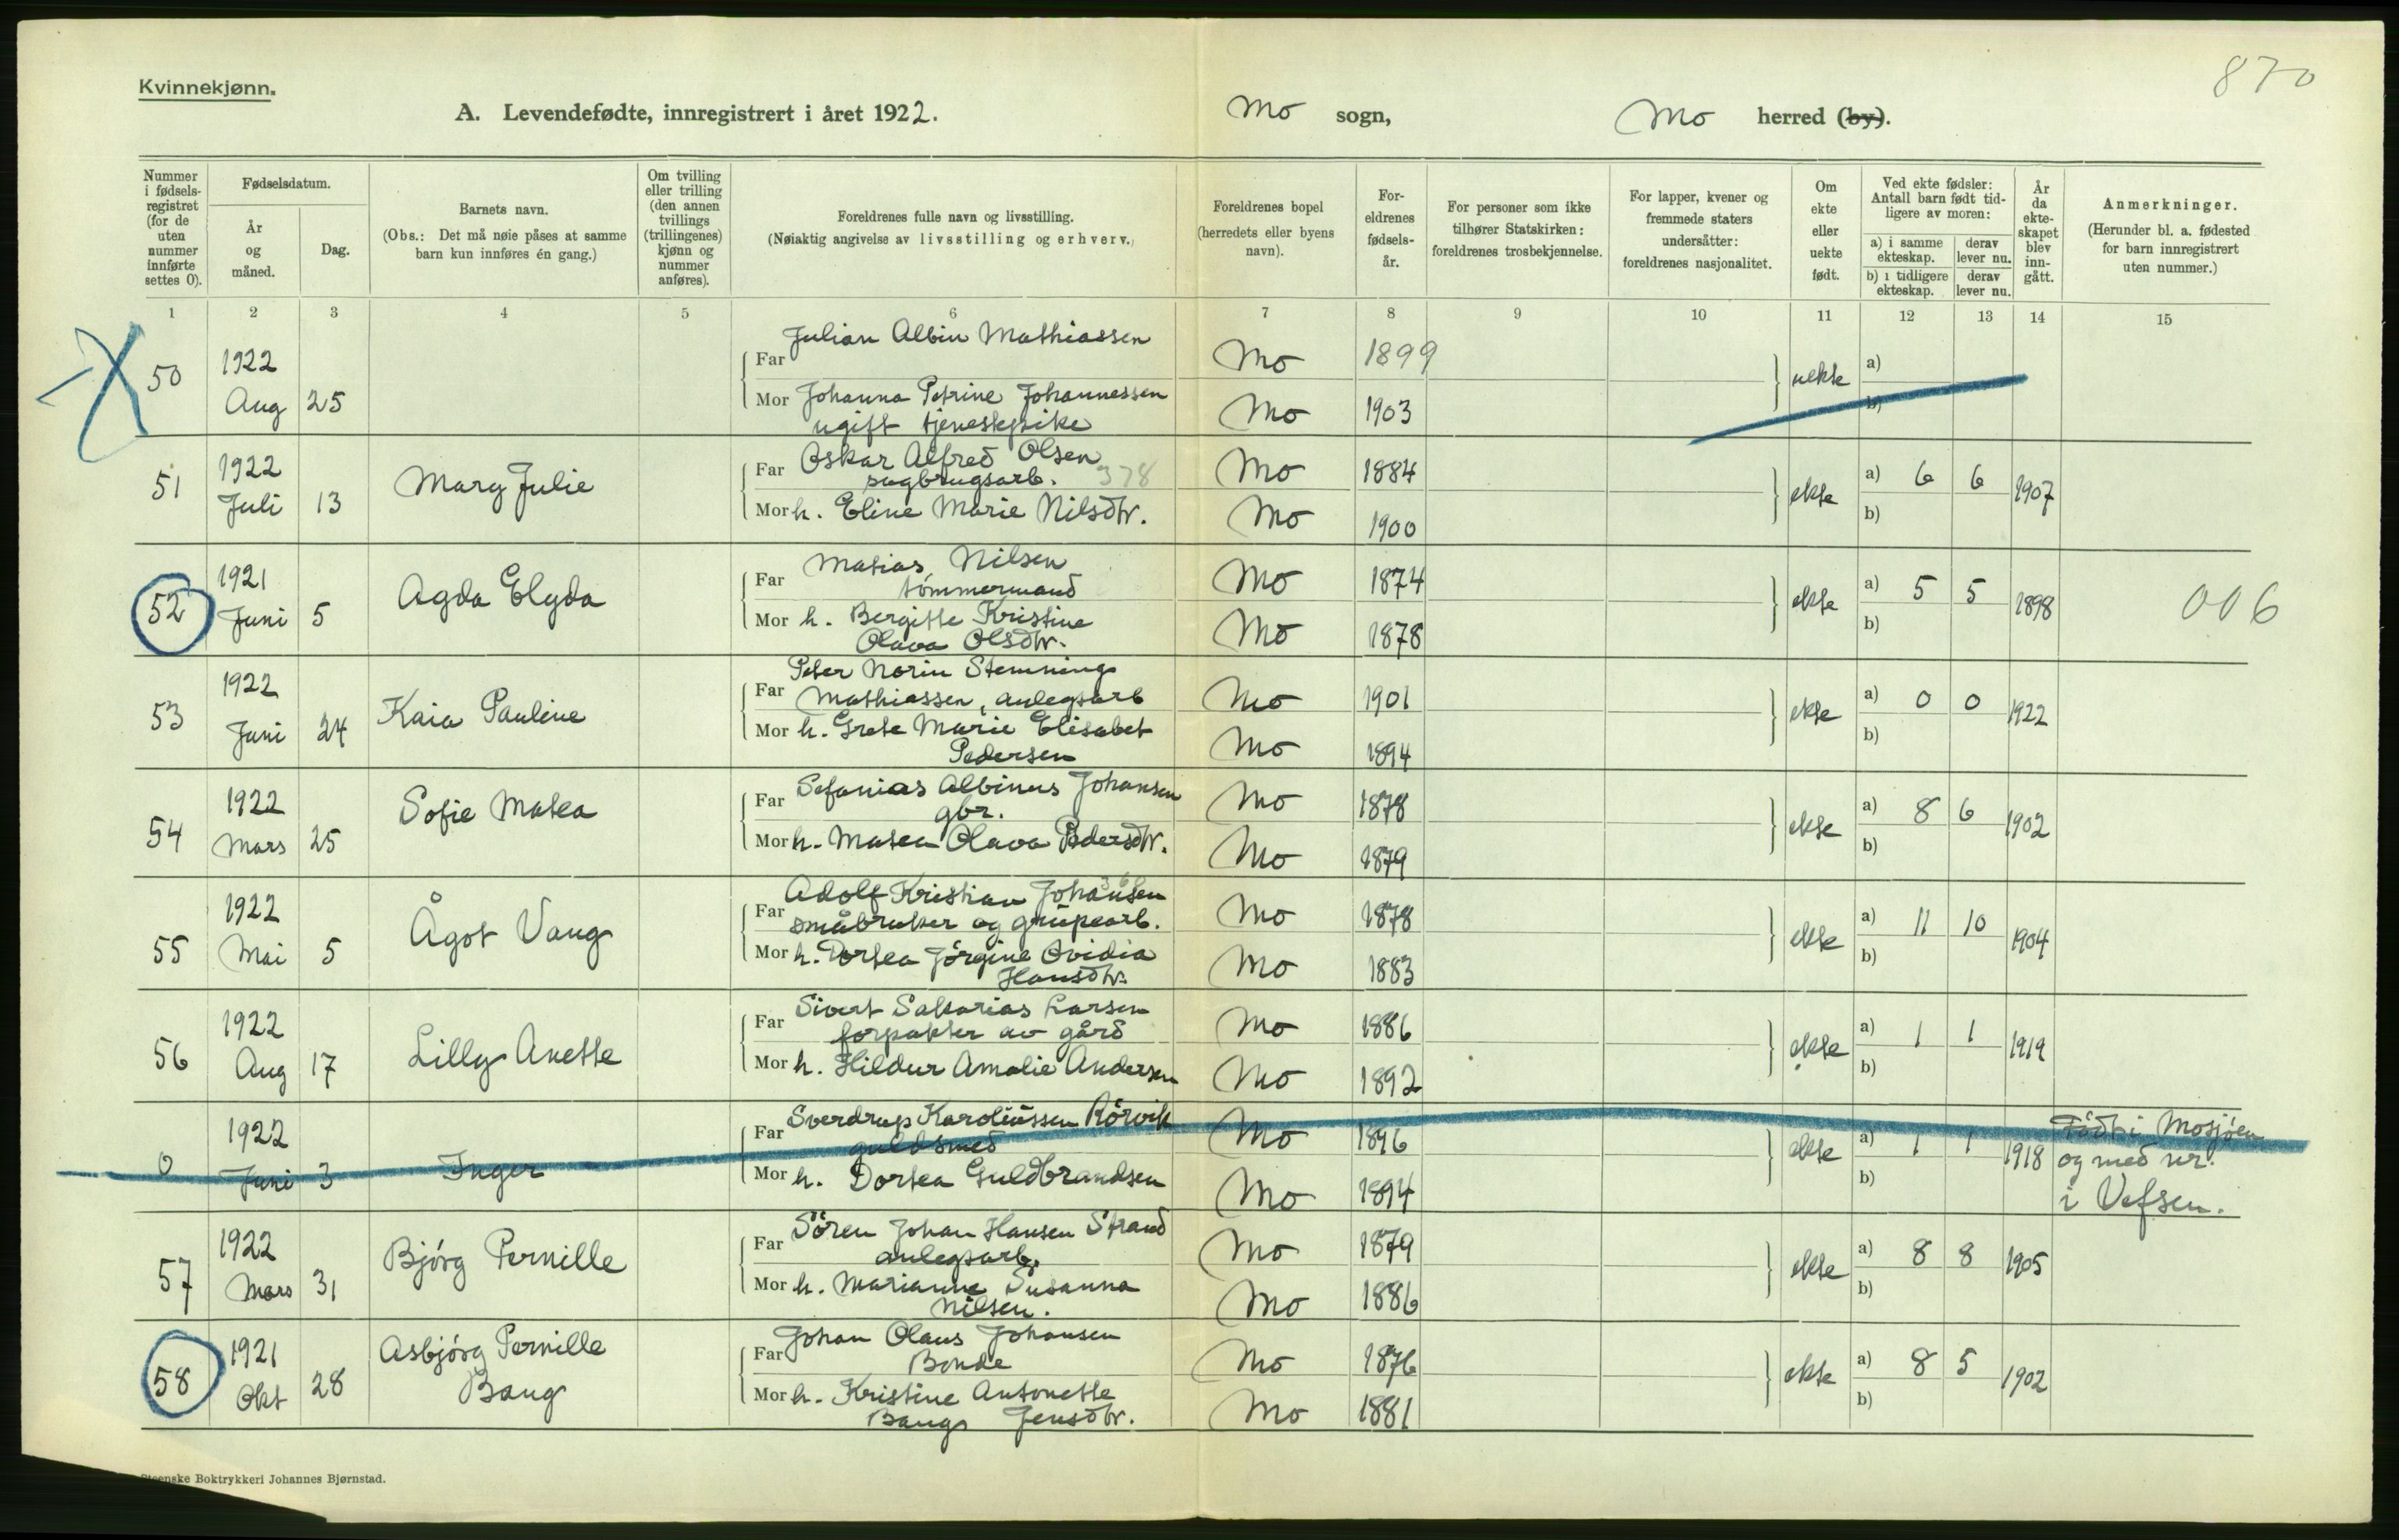 870
Kvinnekjønn.
A. Levendefødte, innregistrert i året 1922. Mo sogn, Mo herred (by).
Nummer i fødsels-registret (for de uten nummer innførte settes 0).
Fødselsdatum.
År og måned.
Dag.
Barnets navn.
(Obs.: Det må nøie påses at samme barn kun innføres én gang.)
Om tvilling eller trilling (den annen tvillings (trillingenes) kjønn og nummer anføres).
Foreldrenes fulle navn og livsstilling.
(Nøiaktig angivelse av livsstilling og erhverv.)
Foreldrenes bopel (herredets eller byens navn).
For-eldrenes fødsels-år.
For personer som ikke tilhører Statskirken: foreldrenes trosbekjennelse.
For lapper, kvener og fremmede staters undersåtter: foreldrenes nasjonalitet.
Om ekte eller uekte født.
Ved ekte fødsler: Antall barn født tid-ligere av moren:
a) i samme ekteskap. derav lever nu.
b) i tidligere ekteskap. derav lever nu.
År da ekte-skapet blev inn-gått.
Anmerkninger.
(Herunder bl. a. fødested for barn innregistrert uten nummer.)
1 2 3 4 5 6 7 8 9 10 11 12 13 14 15
50 1922 Aug 25
Far Julian Albin Mathiassen Mo 1899
Mor Johanna Petrine Johannessen Mo 1903
ugift tjenestepike
uekte a) b)
51 1922 Juli 13 Mary Julie
Far Oskar Alfred Olsen Mo 1884
sagbrugsarb. 378
Mor h. Eline Marie Nilsdtr. Mo 1900
ekte a) 6 6 b) 1907
52 1921 Juni 5 Agda Elyda
Far Matias Nilsen Mo 1874
tömmermand
Mor h. Bergitte Kristine Mo 1878
Olava Olsdtr.
ekte a) 5 5 b) 1898 006
53 1922 Juni 24 Kaia Pauline
Peter Norin Stemning
Far Mathiassen, anlegsarb Mo 1901
Mor h. Grete Marie Elisabet Mo 1894
Pedersen
ekte a) 0 0 b) 1922
54 1922 Mars 25 Sofie Matea
Far Sefanias Albinus Johansen Mo 1878
gbr.
Mor h. Matea Olava Pedersdtr. Mo 1879
ekte a) 8 6 b) 1902
55 1922 Mai 5 Ågot Vang
Adolf Kristian Johansen
Far småbruker og grupearb. Mo 1878
Mor h. Dortea Jörgine Ovidia Mo 1883
Hansdtr.
ekte a) 11 10 b) 1904
56 1922 Aug 17 Lilly Anette
Far Sivert Sakarias Larsen Mo 1886
forpakter av gård
Mor h. Hildur Amalie Andersen Mo 1892
ekte a) 1 1 b) 1919
0 1922 Juni 3 Inger
Far Sverdrup Karoliussen Rörvik Mo 1896
guldsmed
Mor h. Dortea Guldbrandsen Mo 1894
ekte a) 1 1 b) 1918
Född i Mosjöen
og med nr.
i Vefsen.
57 1922 Mars 31 Bjórg Pernille
Far Sören Johan Hansen Strand Mo 1879
anlegsarb.
Mor h. Marianne Susanna Mo 1886
Nilsen.
ekte a) 8 8 b) 1905
58 1921 Okt 28 Asbjórg Pernille
Bang
Far Johan Olaus Johansen Mo 1876
Bonde
Mor h. Kristine Antonette Mo 1881
Bangs Jensdtr.
ekte a) 8 5 b) 1902
Steenske Boktrykkeri Johannes Bjørnstad.